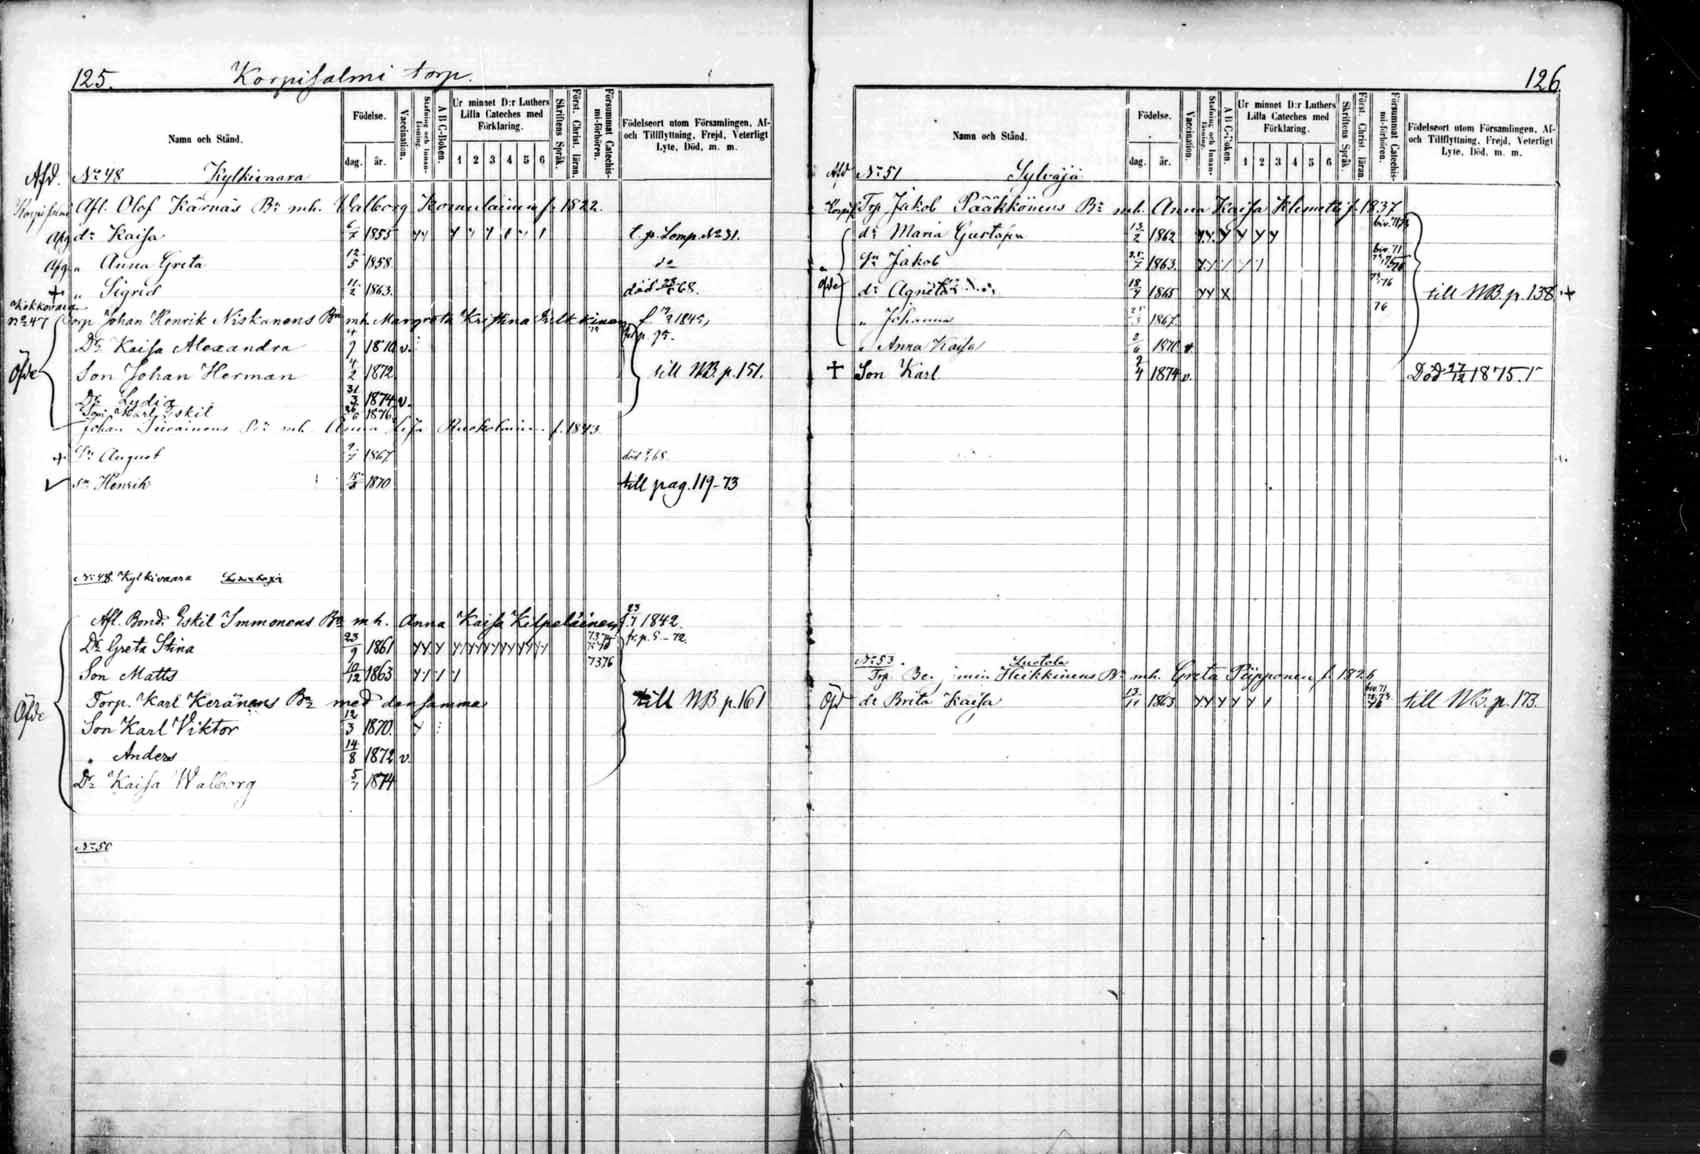 125. Korpisalmi torp.
Namn och Stånd.
Födelse.
dag. år.
Vaccination.
Stafning och Innanläsning.
A B C-Boken.
Ur minnet D:r Luthers Lilla Cateches med Förklaring.
1 2 3 4 5 6
Skriftens Språk.
Först. Christ. läran.
Försummat Catechismi-förhören.
Födelseort utom Församlingen, Af- och Tillflyttning, Frejd, Veterligt Lyte, Död, m. m.
Afd. No 48 Kylkivaara
Korpisalmi Afl. Olof Kärnäs Bn mh. Walborg Komulainen f. 1822.
dr Kaisa 1855 t. p. Lomp. No 31.
" Anna Greta 12/5 1858. do
+ " Sigrid 11/2 1863. död 68.
No 47 Torp Johan Henrik Niskanens Bn mh. Margreta Kristina f. 1845,
Dr Kaisa Alexandra 1870 v. p. 95.
Öfde Son Johan Herman 4/2 1872 till NB. p. 151.
Dr Lydia 31/3 1874 v.
Son Karl Eskil 1876.
Johan Piirainens Bn mh. Anna Lisa f. 1843
+ Sn August 1867 död 68.
sn Henrik 1870 till pag. 119-73
No 48. Kylkivaara
Afl. Bond. Eskil Immonens Bn mh. Anna Kaisa Kilpeläinen f. 23/7 1842.
Dr Greta Stina 23/9 1861 fr. p. 5-72.
Son Matts 10/12 1863 7376
Öfde Torp. Karl Keränens Bn med densamma till NB p. 161
Son Karl Viktor 12/3 1870.
" Anders 14/8 1872 v.
Dr Kaisa Walborg 5/7 1874
No 50
126
Namn och Stånd.
Födelse.
dag. år.
Vaccination.
Stafning och Innanläsning.
A B C-Boken.
Ur minnet D:r Luthers Lilla Cateches med Förklaring.
1 2 3 4 5 6
Skriftens Språk.
Först. Christ. läran.
Försummat Catechismi-förhören.
Födelseort utom Församlingen, Af- och Tillflyttning, Frejd, Veterligt Lyte, Död, m. m.
Afd No 51 Sylväjä
Torp Jakob Pääkkönens Bn mh. Anna Kaisa Klemetti f. 1837
dr Maria Gustafva 13/2 1862
Sn Jakob 1863
Öfde dr Agneta 18/9 1865 till NB. p. 138. +
" Johanna 1867
" Anna Kaisa 2/6 1870 v.
+ Son Karl 2/4 1874 v. Död 27/12 1875.
No 53 Lustola
Torp. Benjamin Heikkinens Bn mh. Greta Piipponen f. 1826
Öfd dr Brita Kaisa 13/11 1863 till NB. p. 173.